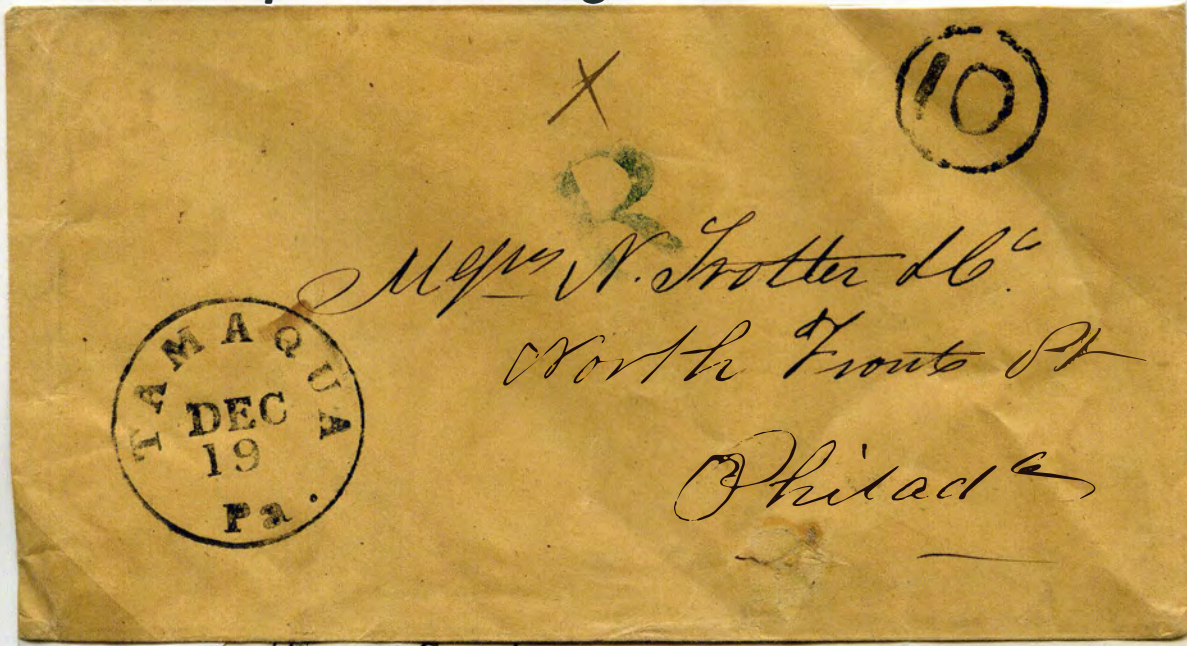 X
10
R
Messrs N. Trotter & Co
North Front St
Philada
TAMAQUA
DEC
19
Pa.